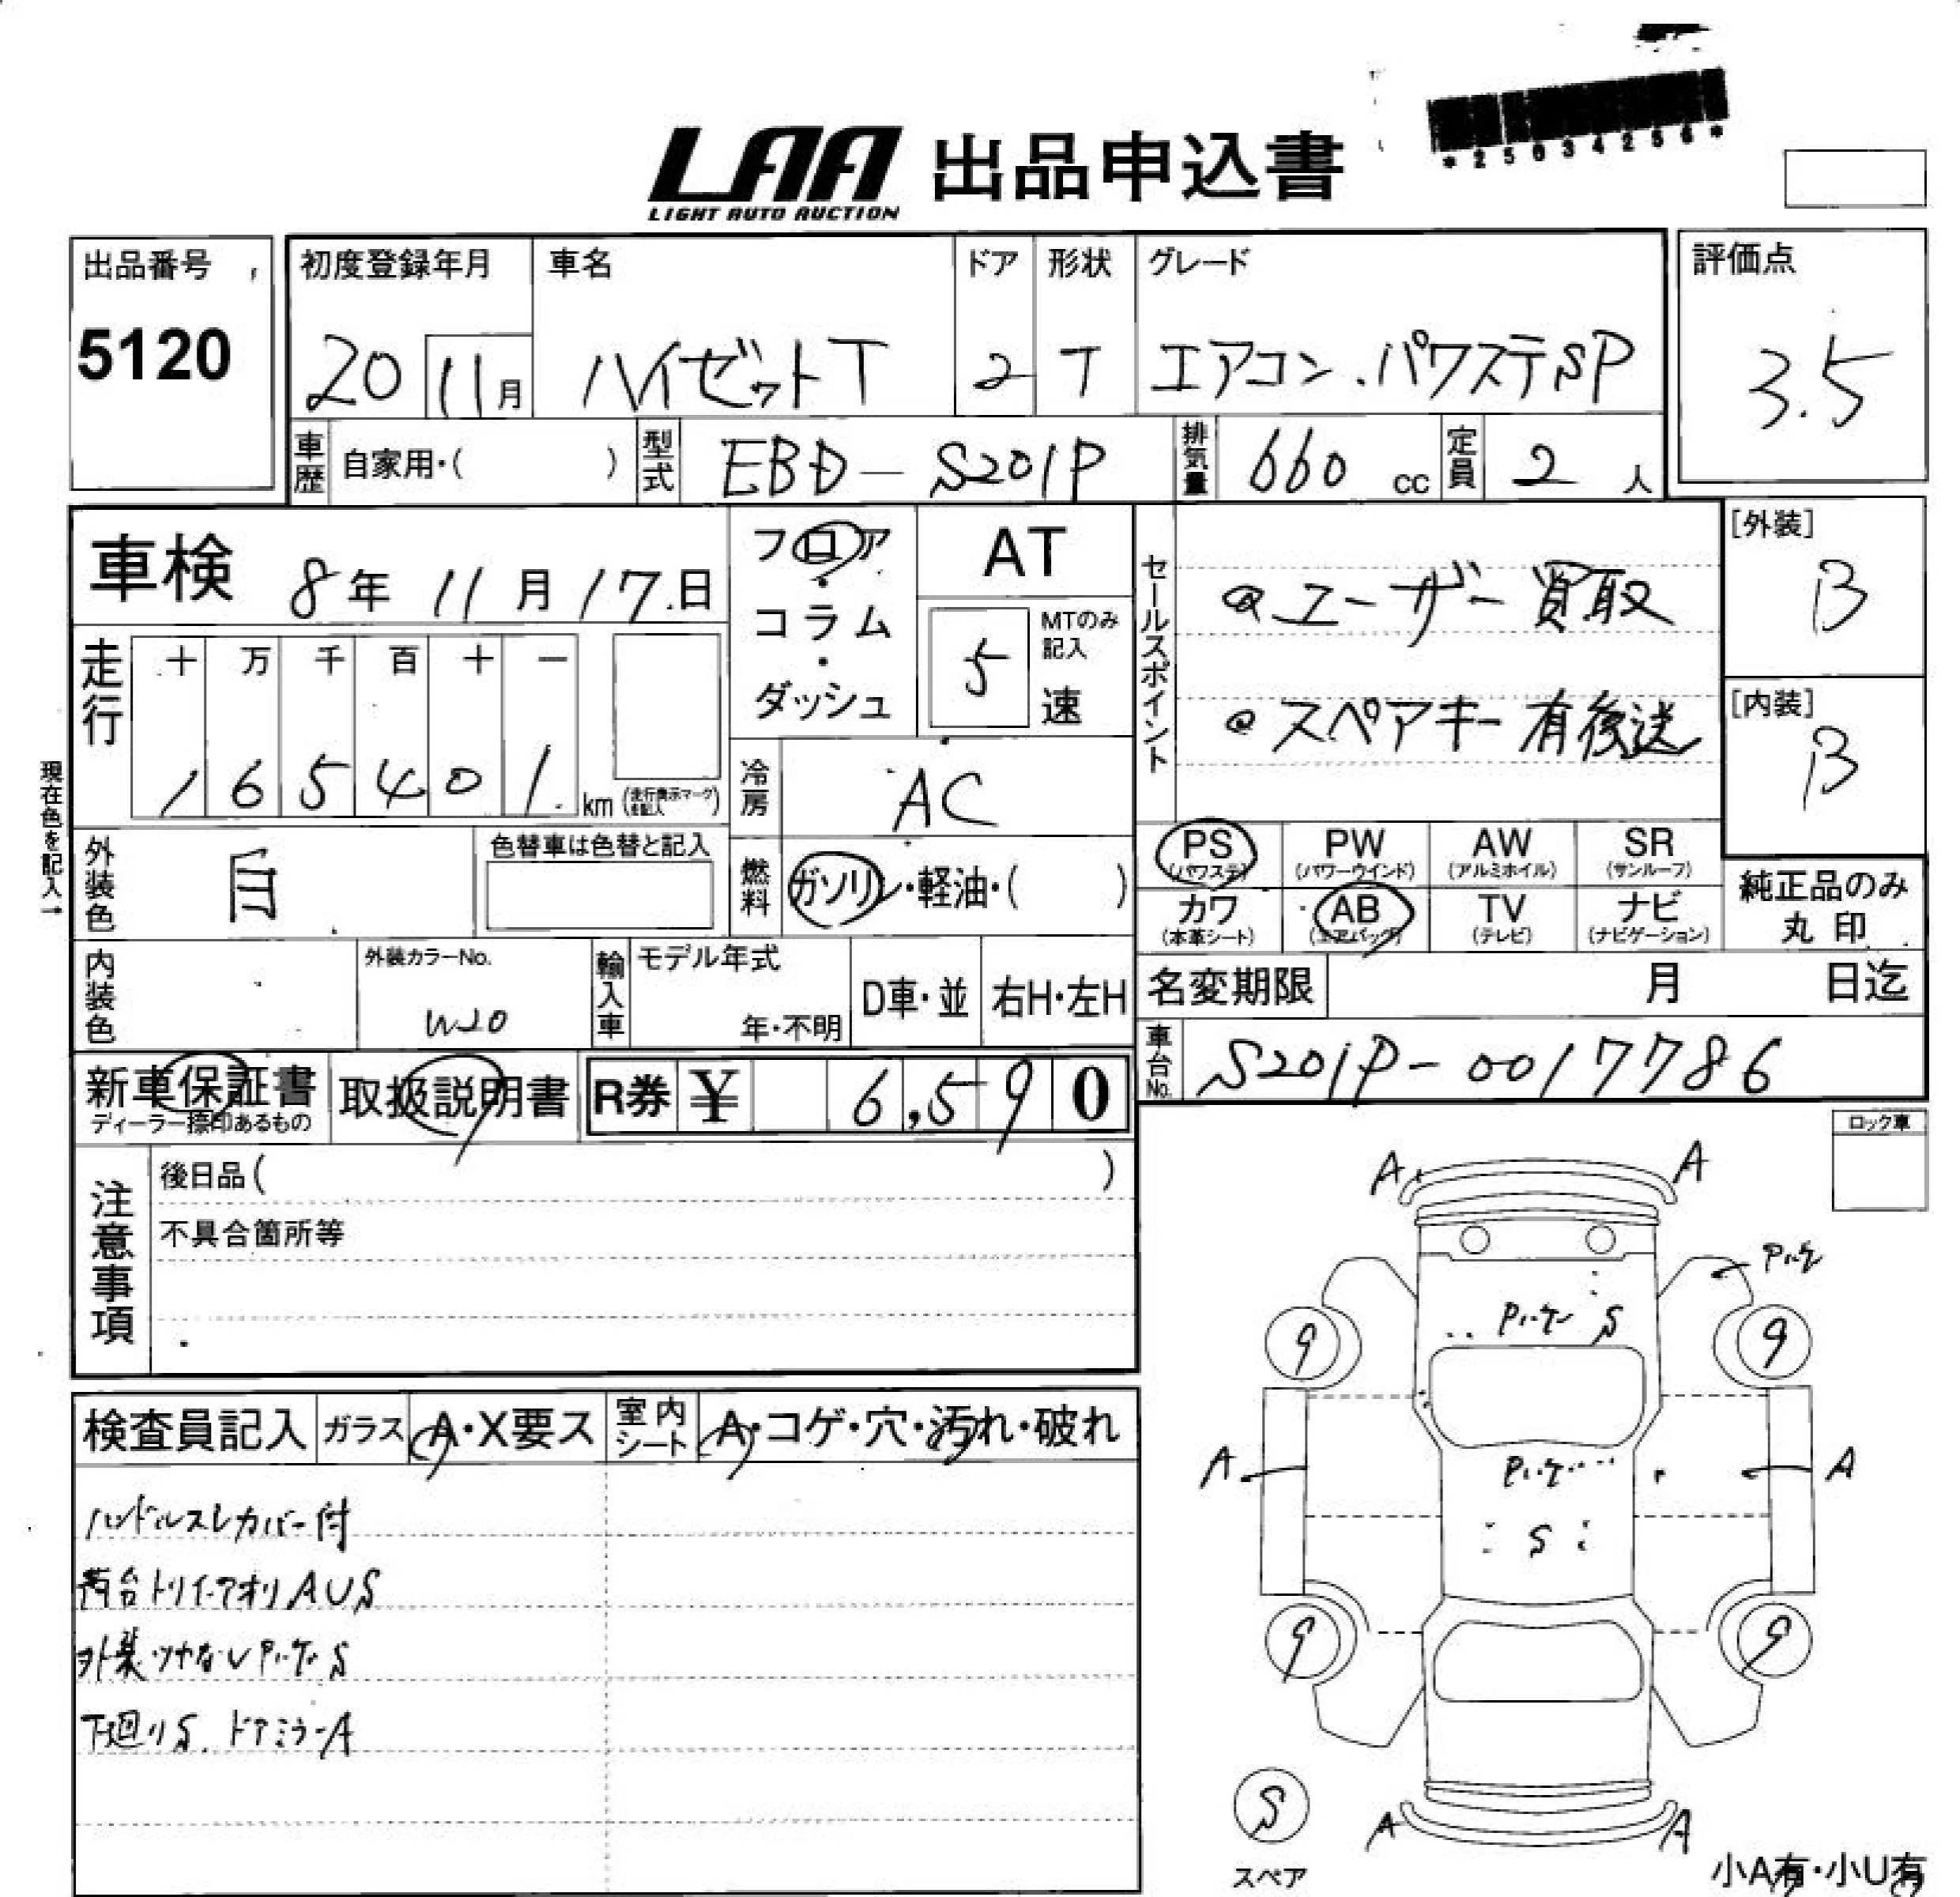 *25034256*
LAA 出品申込書
LIGHT AUTO AUCTION
出品番号 5120
初度登録年月 20 11月
車名 ハイゼットT
ドア 2
形状 T
グレード エアコン.パワステSP
評価点 3.5
車歴 自家用・( )
型式 EBD-S201P
排気量 660 cc
定員 2 人
車検 8年 11月 17日
フロア・コラム・ダッシュ
AT
5 MTのみ記入 速
セールスポイント
@ユーザー買取
@スペアキー有後送
[外装] B
[内装] B
走行
十 万 千 百 十 一
1 6 5 4 0 1 km (走行表示マークを記入)
現在色を記入→
冷房 AC
外装色 白
色替車は色替と記入
燃料 ガソリン・軽油・( )
PS (パワステ)
PW (パワーウインド)
AW (アルミホイル)
SR (サンルーフ)
カワ (本革シート)
AB (エアバッグ)
TV (テレビ)
ナビ (ナビゲーション)
純正品のみ丸印
内装色
外装カラーNo. W20
輸入車
モデル年式 年・不明
D車・並
右H・左H
名変期限 月 日迄
車台No. S201P-0017786
新車保証書 ディーラー捺印あるもの
取扱説明書
R券 ¥ 6,590
注意事項
後日品( )
不具合箇所等
ロック車
検査員記入
ガラス A・X要ス
室内シート A・コゲ・穴・汚れ・破れ
ハンドルスレカバー付
荷台トリイ・アオリAUS
外装ツヤなしP.ヤケ.S
下廻りS.ドアミラーA
A A
P.ヤケ
P.ヤケ S
9 9
A A
P.ヤケ
S
9 9
S
スペア
A A
小A有・小U有